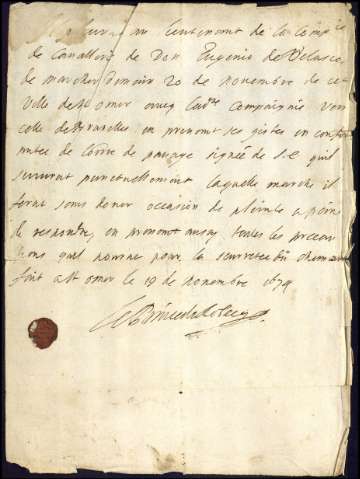 lieutenant de la Comp^ie
de Cavallerie de Don Eugenio de Velasco
de marcher demain 20 de novembre de cet
ville de St omer avecq lad^te Compaignie vers
celle de Bruxelles en prennant ses gistes en confor
mitee de l'ordre de passage signée de S. E. quil
suivrat punctuellement laquelle marche il
ferat sans doner occasion de plainte a peine
de respondre, en prennant aussy toutes les precau
tions quil pourat pour la seurretee du chemin
fait a St omer le 19 de novembre 1674
Le Prince de Robecq